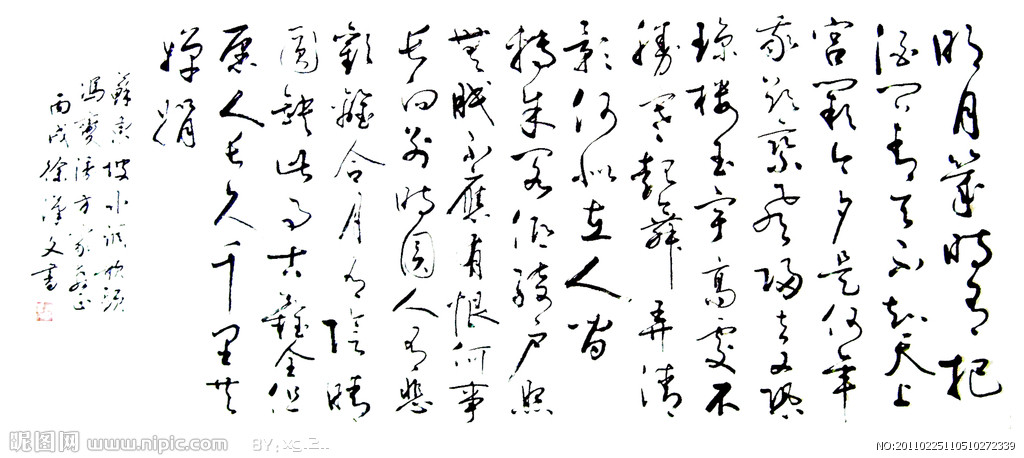 明月幾時有把
酒問青天不知天上
宮闕今夕是何年
我欲乘風歸去又恐
琼楼玉宇高處不
勝寒起舞弄清
影何似在人間
轉朱閣低綺戶照
無眠不應有恨何事
長向別時圓人有悲
歡離合月有陰晴
圓缺此事古難全但
願人長久千里共
嬋娟
蘇東坡水調歌頭
馮寶方家正
丙戌徐漢文書
昵图网 www.nipic.com
BY:
NO:20110225110510272339